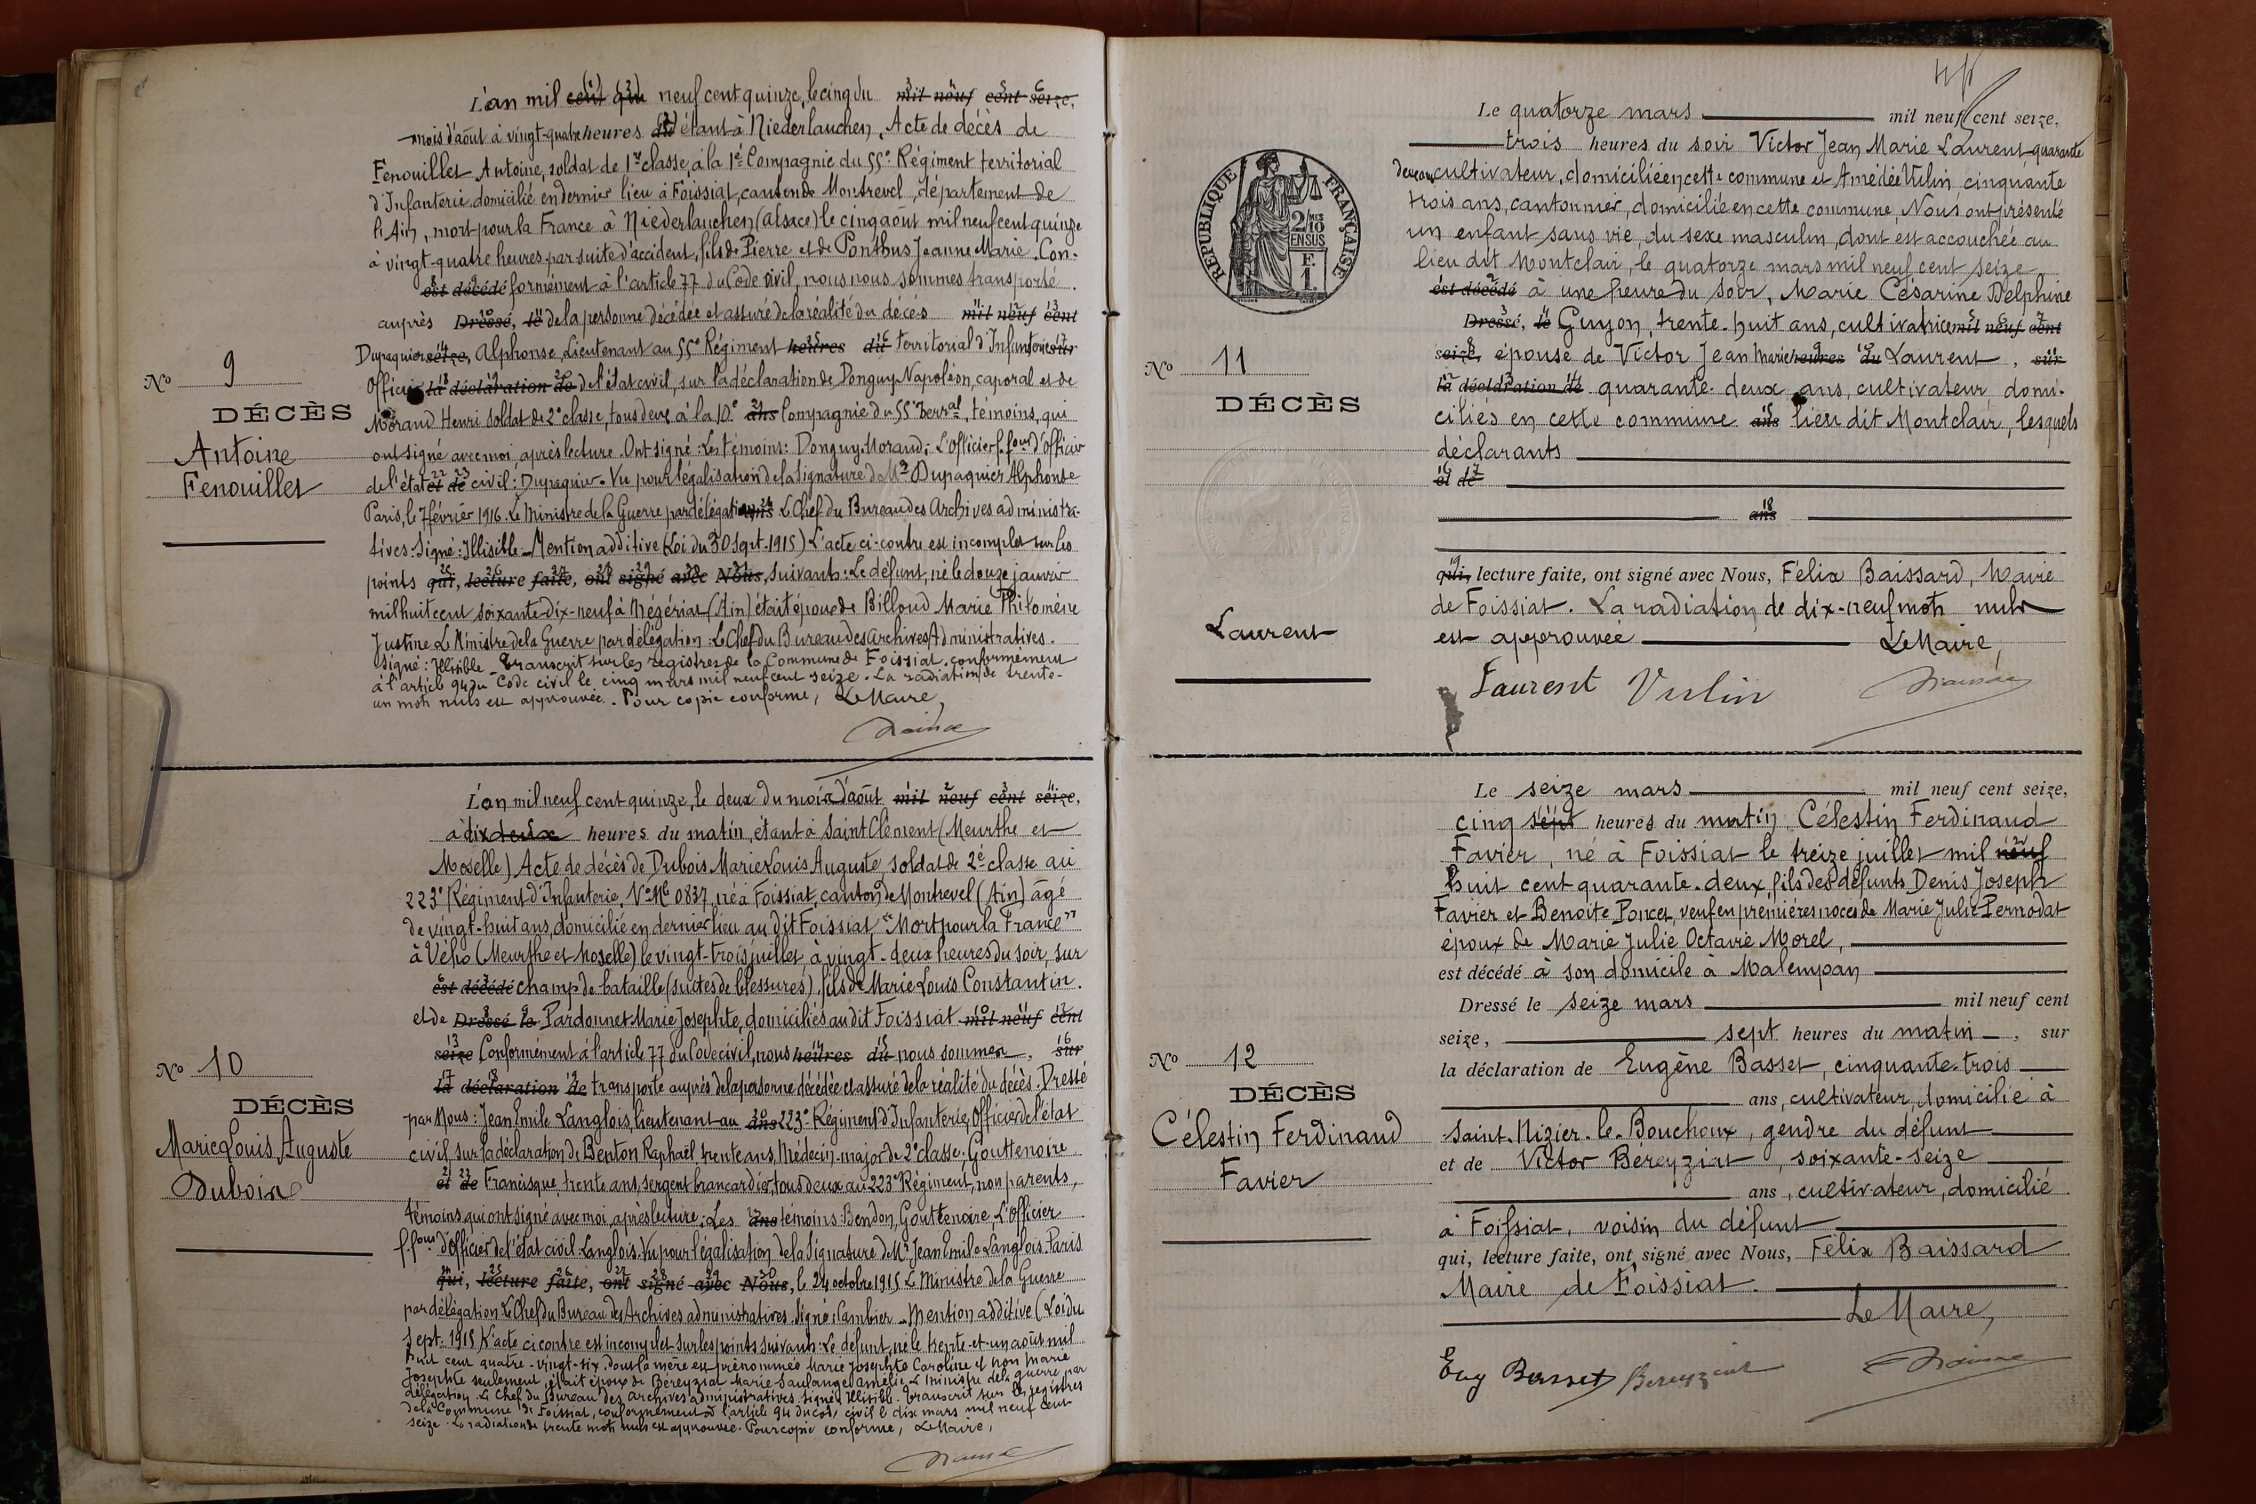 L'an mil cent qu neuf cent quinze, le cinq du mil neuf cent seize,
mois d'août à vingt-quatre heures du étant à Niederlauchen, Acte de décès de
Fenouillet Antoine, soldat de 1re classe, à la 1e Compagnie du 55e Régiment territorial
d'Infanterie domicilié en dernier lieu à Foissiat, canton de Montrevel, département de
l'Ain, mort pour la France à Niederlauchen (Alsace) le cinq août mil neuf cent quinze
à vingt-quatre heures par suite d'accident, fils de Pierre et de Ponthus Jeanne Marie. Con-
est décédé formément à l'article 77 du Code Civil, nous nous sommes transporté
auprès Dressé, le de la personne décédée et assuré de la réalité du décès mil neuf cent
Dupaquier seize, Alphonse, Lieutenant au 55e Régiment heures du territorial d'Infanterie sur
Officier la déclaration de de l'état civil, sur la déclaration de Donguy Napoléon, caporal et de
Morand Henri soldat de 2e classe, tous deux à la 10e ans Compagnie du 55e Terral, témoins, qui
ont signé avec moi après lecture. Ont signé : Les témoins : Donguy, Morand ; L'Officier f. fons d'officier
de l'état et de civil : Dupaquier. Vu pour légalisation de la signature de Mr Dupaquier Alphonse
Paris, le 7 février 1916. Le Ministre de la Guerre par délégation ans Le Chef du Bureau des Archives administra-
tives. Signé : Illisible. Mention additive (Loi du 30 Sept. 1915) L'acte ci-contre est incomplet sur les
points qui, lecture faite, ont signé avec Nous, suivants : Le défunt, né le douze janvier
mil huit cent soixante-dix-neuf à Mégériat (Ain) était époux de Billoud Marie Philomène
Justine Le Ministre de la Guerre par délégation : Le Chef du Bureau des Archives Administratives.
Signé : Illisible. Transcrit sur les registres de la Commune de Foissiat, conformément
à l'article 94 du Code civil le cinq mars mil neuf cent seize. La radiation de trente-
un mots nuls est approuvée. Pour copie conforme, Le Maire,
No 9
DÉCÈS
Antoine
Fenouillet
L'an mil neuf cent quinze, le deux du mois d'août mil neuf cent seize,
à dix deux heures du matin, étant à Saint Clément (Meurthe et
Moselle) Acte de décès de Dubois Marie Louis Auguste soldat de 2e classe au
223e Régiment d'Infanterie, No Mle 0837, né à Foissiat, canton de Montrevel (Ain) âgé
de vingt-huit ans, domicilié en dernier lieu au dit Foissiat, "Mort pour la France"
à Vého (Meurthe et Moselle) le vingt-trois juillet à vingt-deux heures du soir, sur
est décédé champ de bataille (suites de blessures), fils de Marie Louis Constantin.
et de Dressé le Pardonnet Marie Josephte, domiciliés au dit Foissiat mil neuf cent
seize Conformément à l'article 77 du Code civil, nous heures du nous sommes, sur
la déclaration de transporté auprès de la personne décédée et assuré de la réalité du décès. Dressé
par Nous : Jean Emile Langlois, lieutenant au ans 223e Régiment d'Infanterie, Officier de l'état
civil, sur la déclaration de Benton Raphaël, trente ans, Médecin-major de 2e classe ; Gouttenoire
et de Francisque, trente ans, sergent brancardier, tous deux au 223e Régiment, non parents,
témoins qui ont signé avec moi, après lecture. Les ans témoins : Bendon, Gouttenoire, L'officier
f. fons d'Officier de l'état civil : Langlois. Vu pour légalisation de la signature de Mr Jean Emile Langlois. Paris
qui, lecture faite, ont signé avec Nous, le 24 octobre 1915 Le Ministre de la Guerre
par délégation Le Chef du Bureau des Archives administratives. Signé : Cambier. Mention additive (Loi du
Sept. 1915) L'acte ci contre est incomplet sur les points suivants : Le défunt, né le trente-et-un août mil
huit cent quatre-vingt-six, dont la mère est prénommée Marie Josephte Caroline et non Marie
Josephte seulement, était époux de Béreyziat Marie Amélie. Le Ministre de la guerre, par
délégation. Le Chef du Bureau des Archives administratives. Signé : Illisible. Transcrit sur les registres
de la Commune de Foissiat, conformément à l'article 94 du Code civil le dix mars mil neuf cent
seize. La radiation de trente mots nuls est approuvée. Pour copie conforme, Le Maire,
No 10
DÉCÈS
Marie Louis Auguste
Dubois
Le quatorze mars mil neuf cent seize,
trois heures du soir Victor Jean Marie Laurent quarante
deux ans cultivateur, domicilié en cette commune et Amédée Vulin cinquante
trois ans, cantonnier, domicilié en cette commune, Nous ont présenté
un enfant sans vie, du sexe masculin, dont est accouchée au
lieu dit Montclair, le quatorze mars mil neuf cent seize
est décédé à une heure du soir, Marie Césarine Delphine
Dressé, le Guyon, trente-huit ans, cultivatrice mil neuf cent
seize, épouse de Victor Jean Marie heures du Laurent, sur
la déclaration de quarante-deux ans, cultivateur domi-
ciliés en cette commune ans lieu dit Montclair, lesquels
déclarants
et de
ans
qui, lecture faite, ont signé avec Nous, Félix Baissard, Maire
de Foissiat. La radiation de dix-neuf mots nuls
est approuvée Le Maire,
Laurent Vulin
RÉPUBLIQUE FRANÇAISE
2/10 EN SUS
F. 1
No 11
DÉCÈS
Laurent
Le seize mars mil neuf cent seize,
cinq sept heures du matin Célestin Ferdinand
Favier, né à Foissiat le treize juillet mil neuf
huit cent quarante-deux, fils des défunts Denis Joseph
Favier et Benoîte Poncet, veuf en premières noces de Marie Julie Pernodat
époux de Marie Julie Octavie Morel,
est décédé à son domicile à Malempan
Dressé le seize mars mil neuf cent
seize, sept heures du matin, sur
la déclaration de Eugène Basset, cinquante-trois
ans, cultivateur, domicilié à
Saint-Nizier-le-Bouchoux, gendre du défunt
et de Victor Béreyziat, soixante-seize
ans, cultivateur, domicilié
à Foissiat, voisin du défunt
qui, lecture faite, ont signé avec Nous, Félix Baissard
Maire de Foissiat.
Le Maire,
Eug Basset Bereyziat
No 12
DÉCÈS
Célestin Ferdinand
Favier